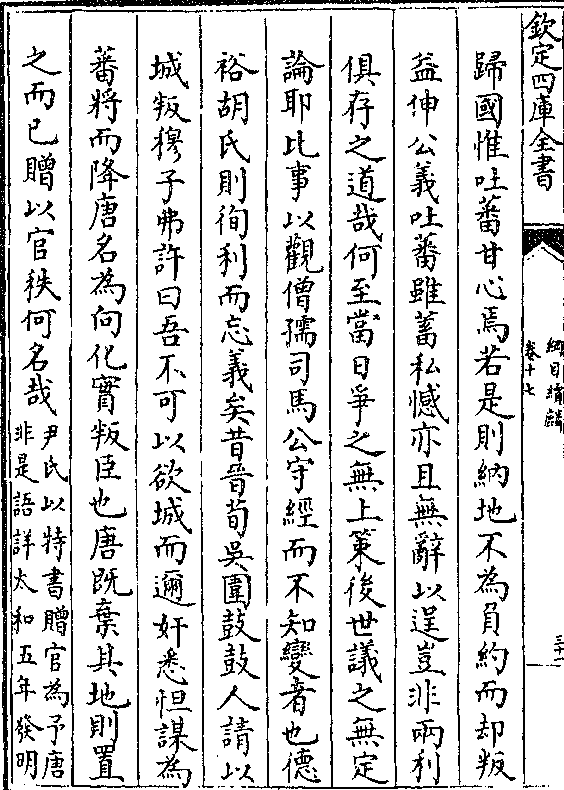 欽定四庫全書
綱目續麟
卷十七
三十一
歸國惟吐蕃甘心焉若是則納地不為負約而却叛
益伸公義吐蕃雖蓄私憾亦且無辭以逞豈非兩利
俱存之道哉何至當日爭之無上策後世議之無定
論耶比事以觀僧孺司馬公守經而不知變者也德
裕胡氏則徇利而忘義矣昔晉荀吳圍鼓鼓人請以
城叛穆子弗許曰吾不可以欲城而邇奸悉怛謀為
蕃將而降唐名為向化實叛臣也唐既棄其地則置
之而已贈以官秩何名哉
尹氏以特書贈官為予唐
非是語詳太和五年發明